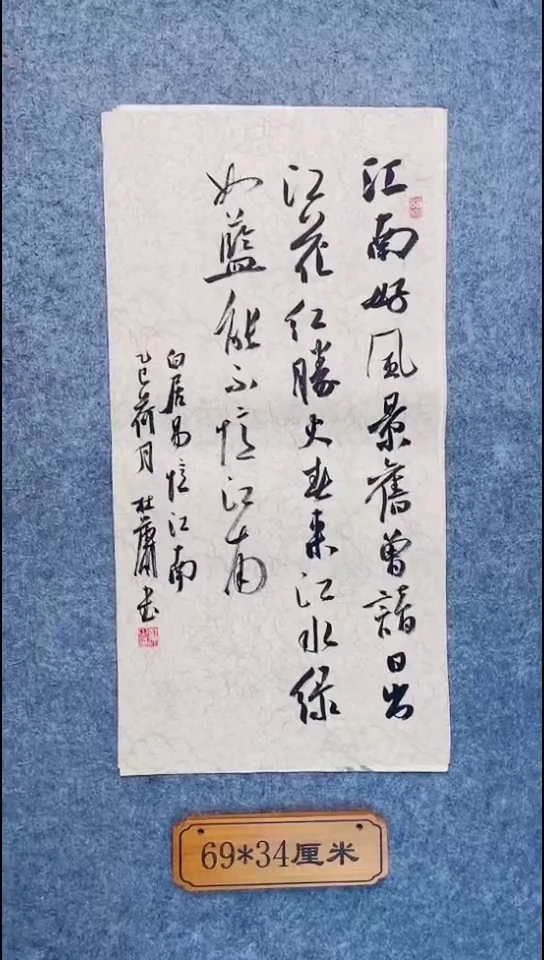 江南好風景舊曾諳日出
江花红勝火春来江水绿
如藍能不憶江南
白居易憶江南
乙巳荷月 杜庸书
69*34厘米